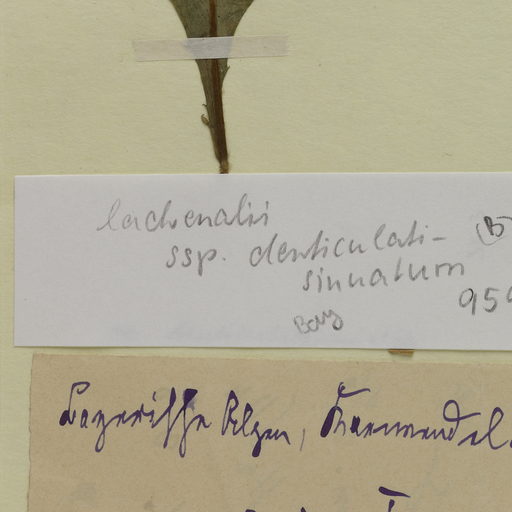 lachenalii
ssp. denticulati-
sinuatum (B)
Bay 959
Bayerische Alpen, Karwendel.